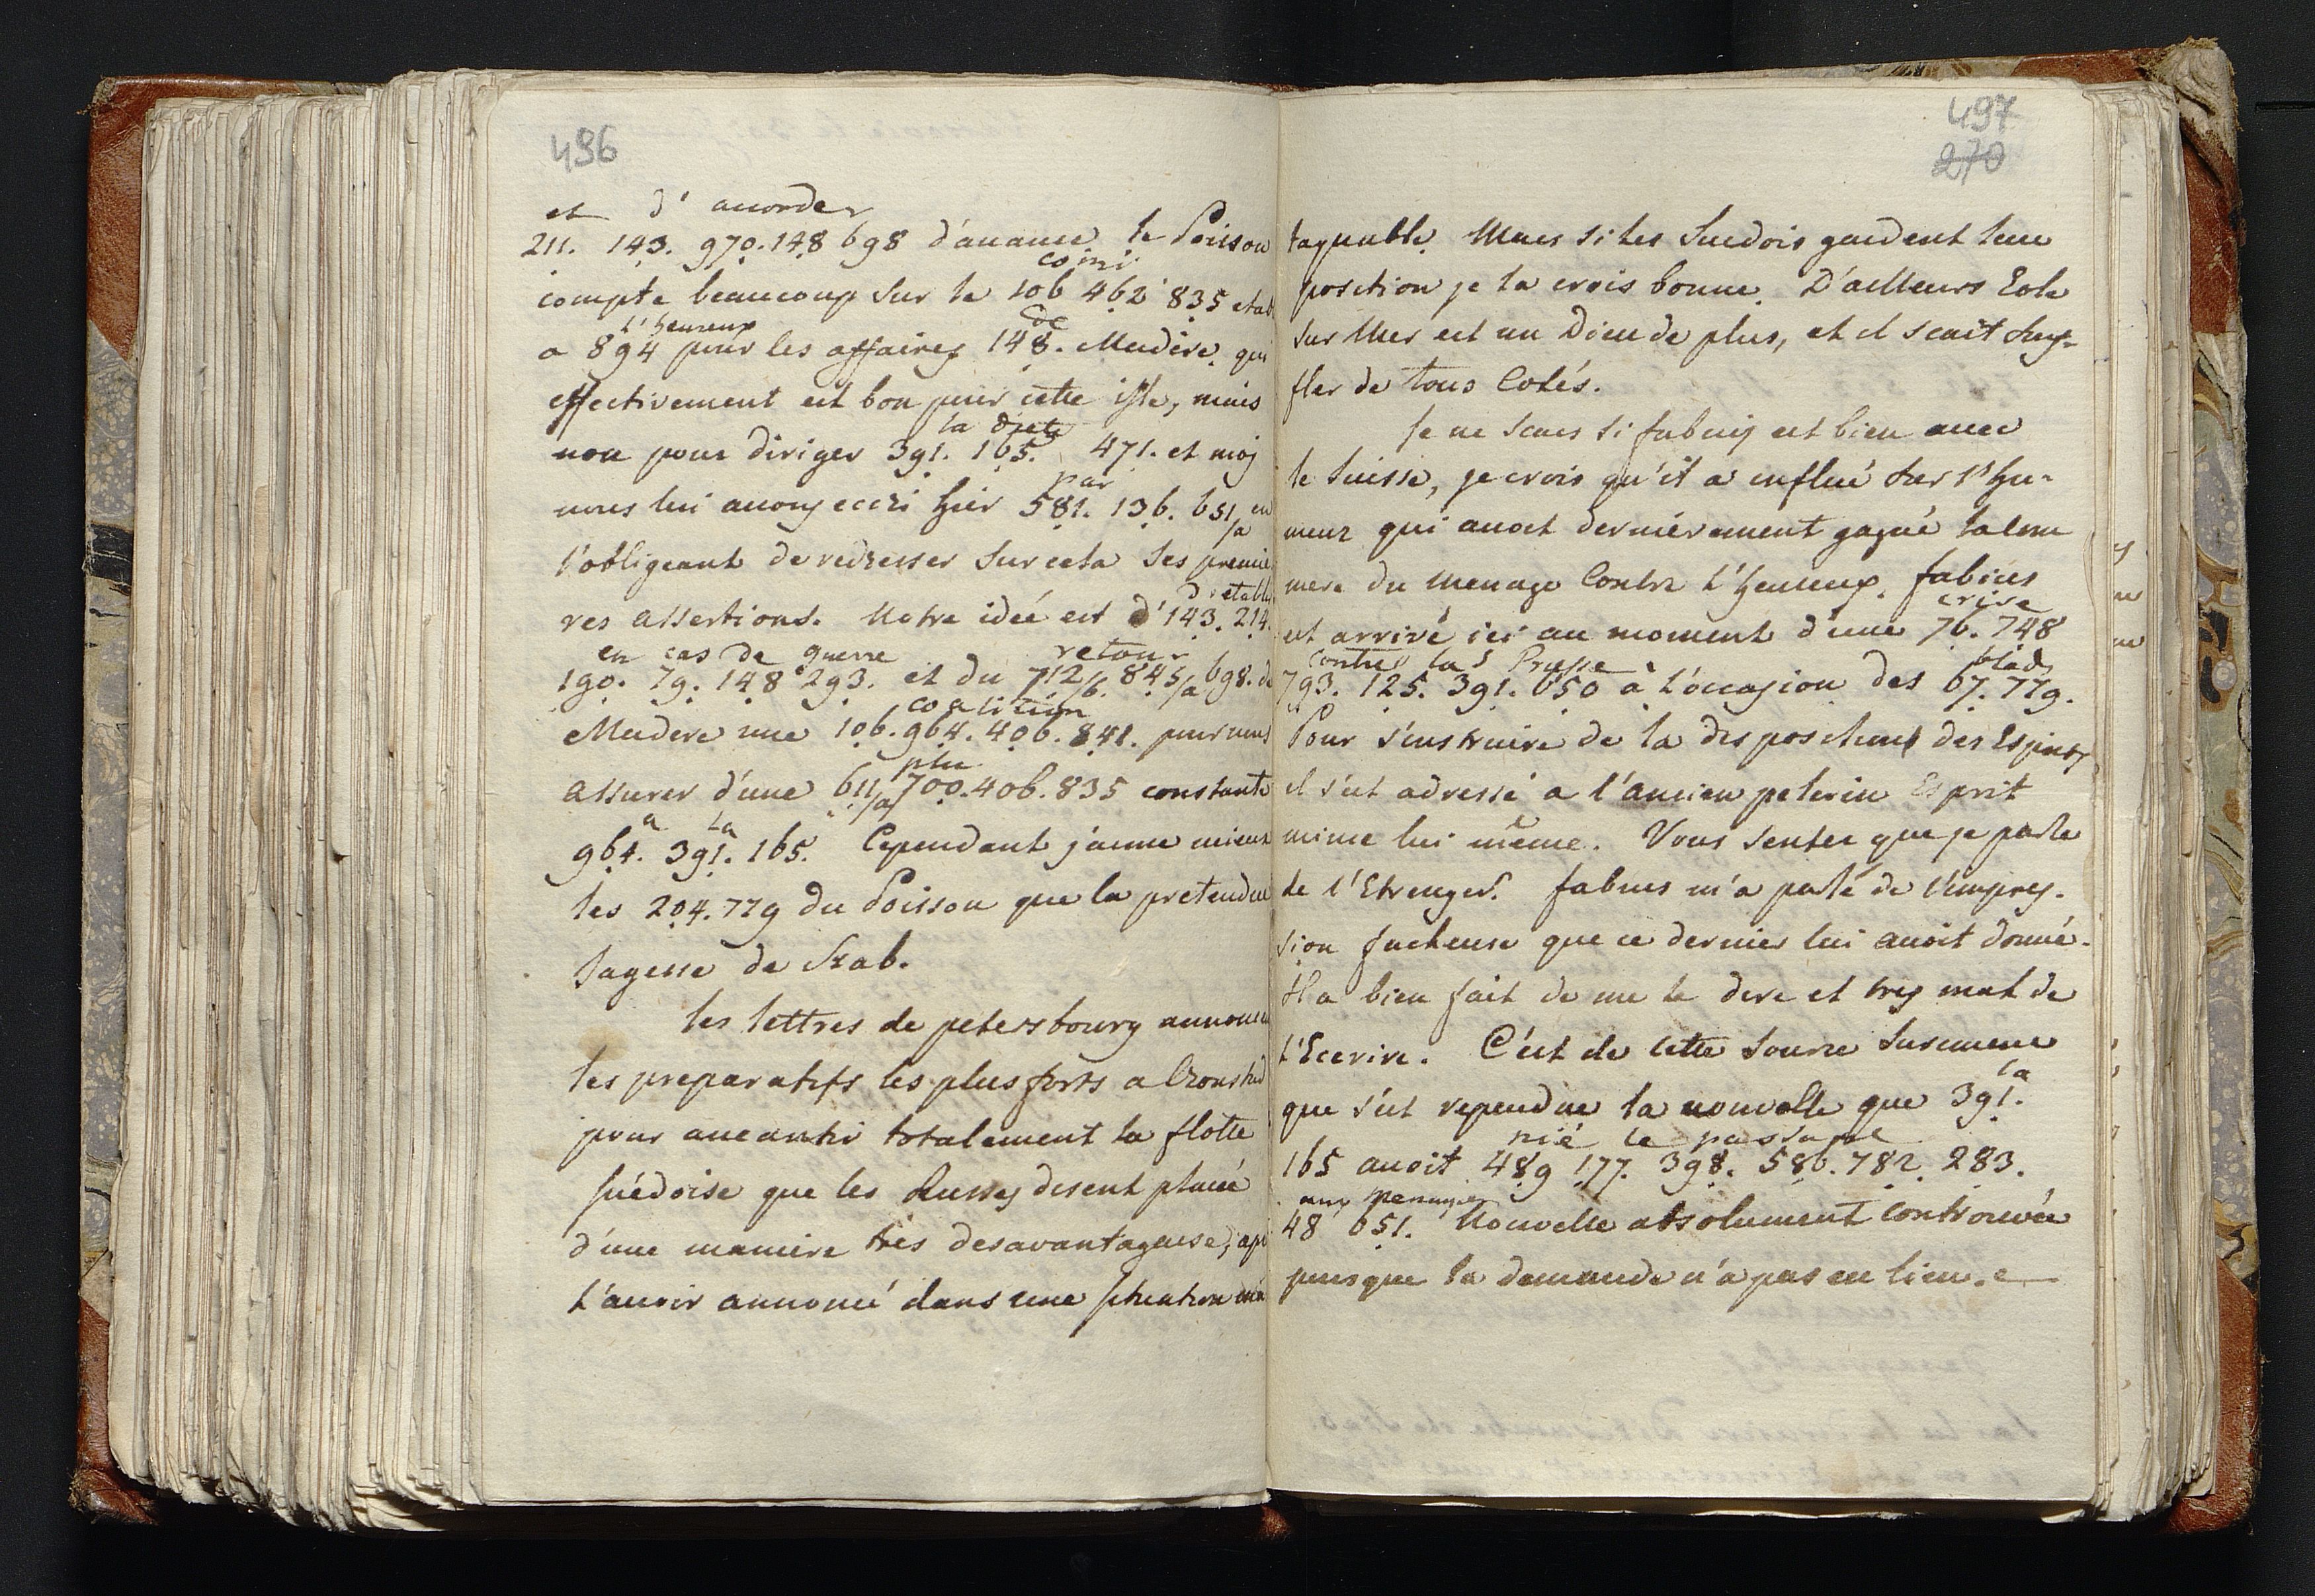 496
et d' accorder
211. 143. 970. 148 698 d'avance le Poisson
comi
compte beaucoup sur le 106 462 835 etab
l'heureux de
a 894 pour les affaires 148. Madere qui
effectivement est bon pour cette isle, mais
la diete
non pour diriger 391. 165. 471. et moj
par
nous lui avons ecrit hier 581. 136. 651 en
l'obligeant de redresser sur cela ses premie
d'etabli
res assertions. Notre idée est d'143. 214.
en cas de guerre retour
190. 79. 148 293. et du 712/6. 845/a 698. de
coalition
Madere une 106. 964. 406. 841. pour nous
plu
assurer d'une 611/a/ 700. 406. 835 constante
a la
964. 391. 165. Cependant j'aime mieux
les 204. 779 du Poisson que la pretendue
sagesse de Stab.
les lettres de petersbourg annonce
les preparatifs les plus forts a Cronstad
pour aneantir totalement la flotte
suédoise que les Russes disent placée
d'une maniere tres desavantageuse, apr
l'avoir annoncé dans une situation ina
497
270
taquable. Mais si les Suedois gardent leur
position je la crois bonne. D'ailleurs Eole
sur Mer est un Dieu de plus, et il scait suf-
fler de tous Cotés.
Je ne scais si fabius est bien avec
le Suisse, je crois qu'il a influé sur l'hu-
meur qui avoit derniérement gagné la com
mere du menage Contre l'heureux. fabius
crise
est arrivé ici au moment d'une 76. 748
contre la Prusse bleds
793. 125. 391. 650 à l'occasion des 67. 779.
Pour s'instruire de la disposition des Esprits
il s'est adressé a l'ancien pelerin Esprit
mime lui même. Vous sentez que je parle
de l'Etranger. fabius m'a parlé de l'impres-
sion facheuse que ce dernier lui avoit donné.
Il a bien fait de me le dire et tres mal de
l'Ecrire. C'est de cette source surement
la
que s'est rependue la nouvelle que 391.
nié le passage
165 avoit 489 177. 398. 586. 782. 283.
aux
48 651. Nouvelle absolument controuvée
puisque la demande n'a pas eu lieu.